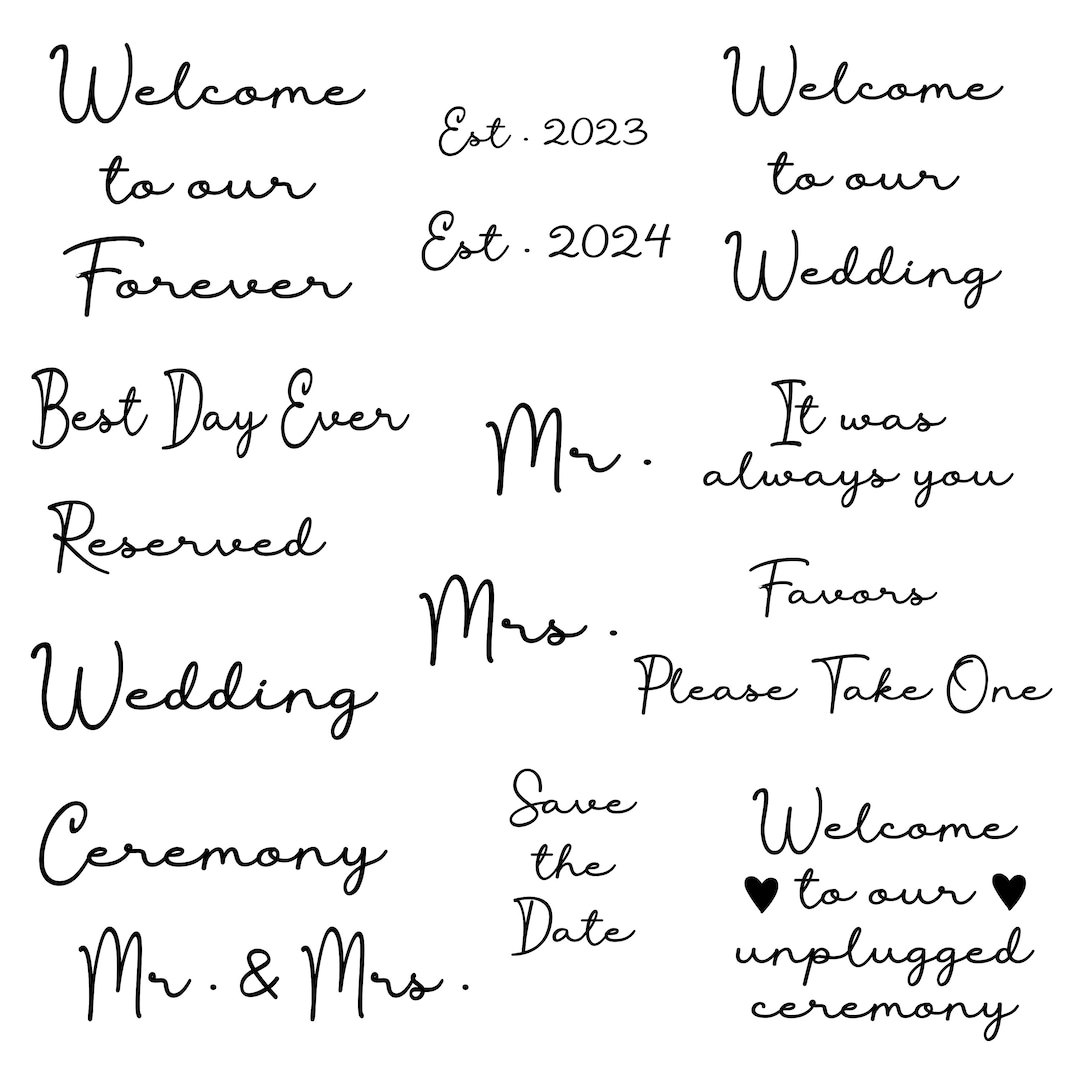 Welcome
to our
Forever
Est . 2023
Est . 2024
Welcome
to our
Wedding
Best Day Ever
Mr .
It was
always you
Reserved
Mrs .
Favors
Please Take One
Wedding
Ceremony
Save
the
Date
Welcome
♥ to our ♥
unplugged
ceremony
Mr . & Mrs .